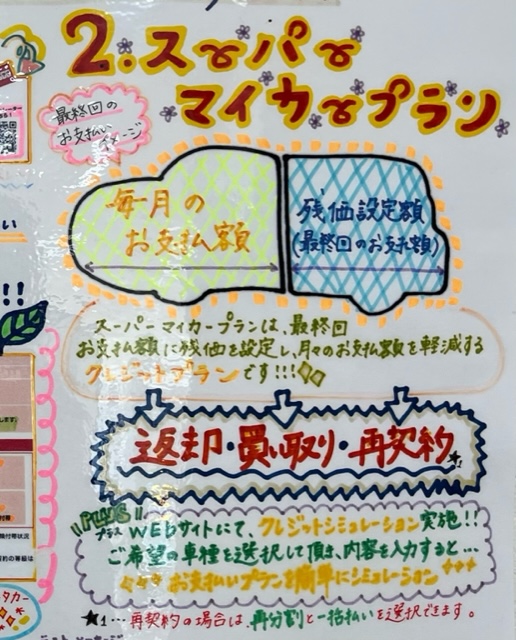 2.スーパー
マイカープラン
最終回の
お支払い
イメージ
毎月の
お支払額
残価設定額
(最終回のお支払額)
スーパーマイカープランは、最終回
お支払額に残価を設定し、月々のお支払額を軽減する
クレジットプランです!!!
返却・買い取り・再契約
★1
"PLUS"
プラス
WEBサイトにて、クレジットシミュレーション実施!!
ご希望の車種を選択して頂き、内容を入力すると...
お支払いプランを簡単にシミュレーション
★1...再契約の場合は、再分割と一括払いを選択できます。
い
!!
タカー